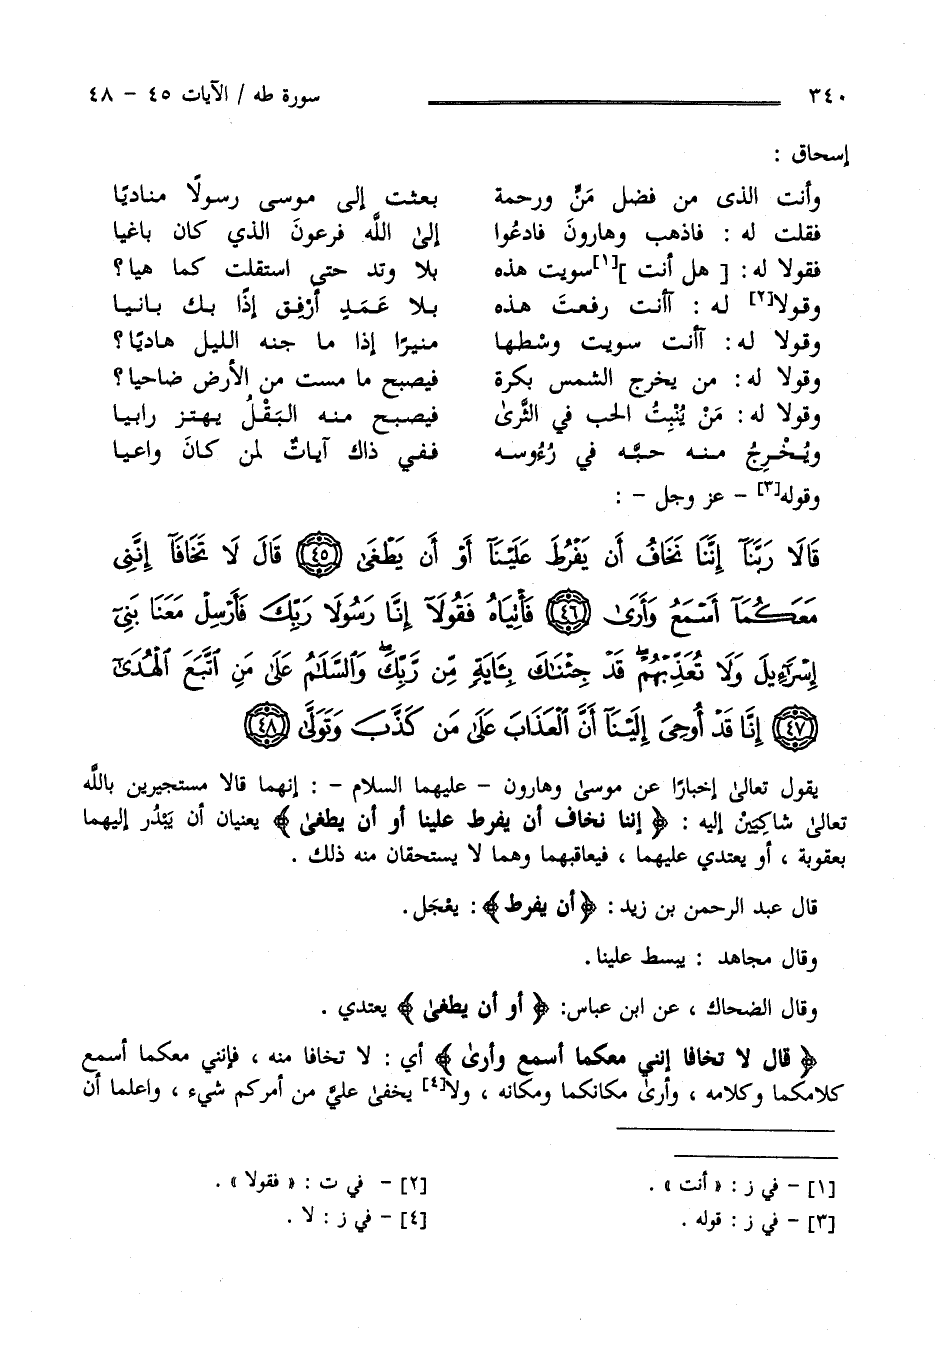 ٣٤٠ سورة طه / الآيات ٤٥ - ٤٨
إسحاق :
وأنت الذى من فضل مَنٍّ ورحمة بعثت إلى موسى رسولًا مناديًا
فقلت له : فاذهب وهارونَ فادعُوا إلىٰ اللَّه فرعونَ الذي كان باغيا
فقولا له : [ هل أنت ][١] سويت هذه بلا وتد حتى استقلت كما هيا؟
وقولا[٢] له : آأنت رفعتَ هذه بلا عَمَدٍ أرْفِق إذًا بك بانيا
وقولا له : آأنت سويت وسْطها منيرًا إذا ما جنه الليل هاديًا؟
وقولا له : من يخرج الشمس بكرة فيصبح ما مست من الأرض ضاحيا؟
وقولا له : مَنْ يُنْبِتُ الحب في الثَّرىٰ فيصبح منه البَقْلُ يهتز رابيا
ويُخْرِجُ منه حبَّه في رُءُوسه ففي ذاك آياتٌ لمن كانَ واعيا
وقوله[٣] - عز وجل - :
قَالَا رَبَّنَآ إِنَّنَا نَخَافُ أَن يَفْرُطَ عَلَيْنَآ أَوْ أَن يَطْغَىٰ ٤٥ قَالَ لَا تَخَافَآ إِنَّنِى
مَعَكُمَآ أَسْمَعُ وَأَرَىٰ ٤٦ فَأْتِيَاهُ فَقُولَآ إِنَّا رَسُولَا رَبِّكَ فَأَرْسِلْ مَعَنَا بَنِىٓ
إِسْرَٰٓءِيلَ وَلَا تُعَذِّبْهُمْ ۖ قَدْ جِئْنَٰكَ بِـَٔايَةٍ مِّن رَّبِّكَ ۖ وَٱلسَّلَٰمُ عَلَىٰ مَنِ ٱتَّبَعَ ٱلْهُدَىٰٓ
٤٧ إِنَّا قَدْ أُوحِىَ إِلَيْنَآ أَنَّ ٱلْعَذَابَ عَلَىٰ مَن كَذَّبَ وَتَوَلَّىٰ ٤٨
يقول تعالىٰ إخبارًا عن موسىٰ وهارون - عليهما السلام - : إنهما قالا مستجيرين باللَّه
تعالىٰ شاكِيَيْن إليه : ﴿ إننا نخاف أن يفرط علينا أو أن يطغىٰ ﴾ يعنيان أن يَبْدُر إليهما
بعقوبة ، أو يعتدي عليهما ، فيعاقبهما وهما لا يستحقان منه ذلك .
قال عبد الرحمن بن زيد : ﴿أن يفرط﴾ : يعْجَل .
وقال مجاهد : يبسط علينا .
وقال الضحاك ، عن ابن عباس: ﴿ أو أن يطغىٰ ﴾ يعتدي .
﴿ قال لا تخافا إنني معكما أسمع وأرىٰ ﴾ أي : لا تخافا منه ، فإنني معكما أسمع
كلامكما وكلامه ، وأرىٰ مكانكما ومكانه ، ولا[٤] يخفىٰ عليَّ من أمركم شيء ، واعلما أن
[١] - في ز : « أنت » . [٢] - في ت : « فقولا » .
[٣] - في ز : قوله . [٤] - في ز : لا .